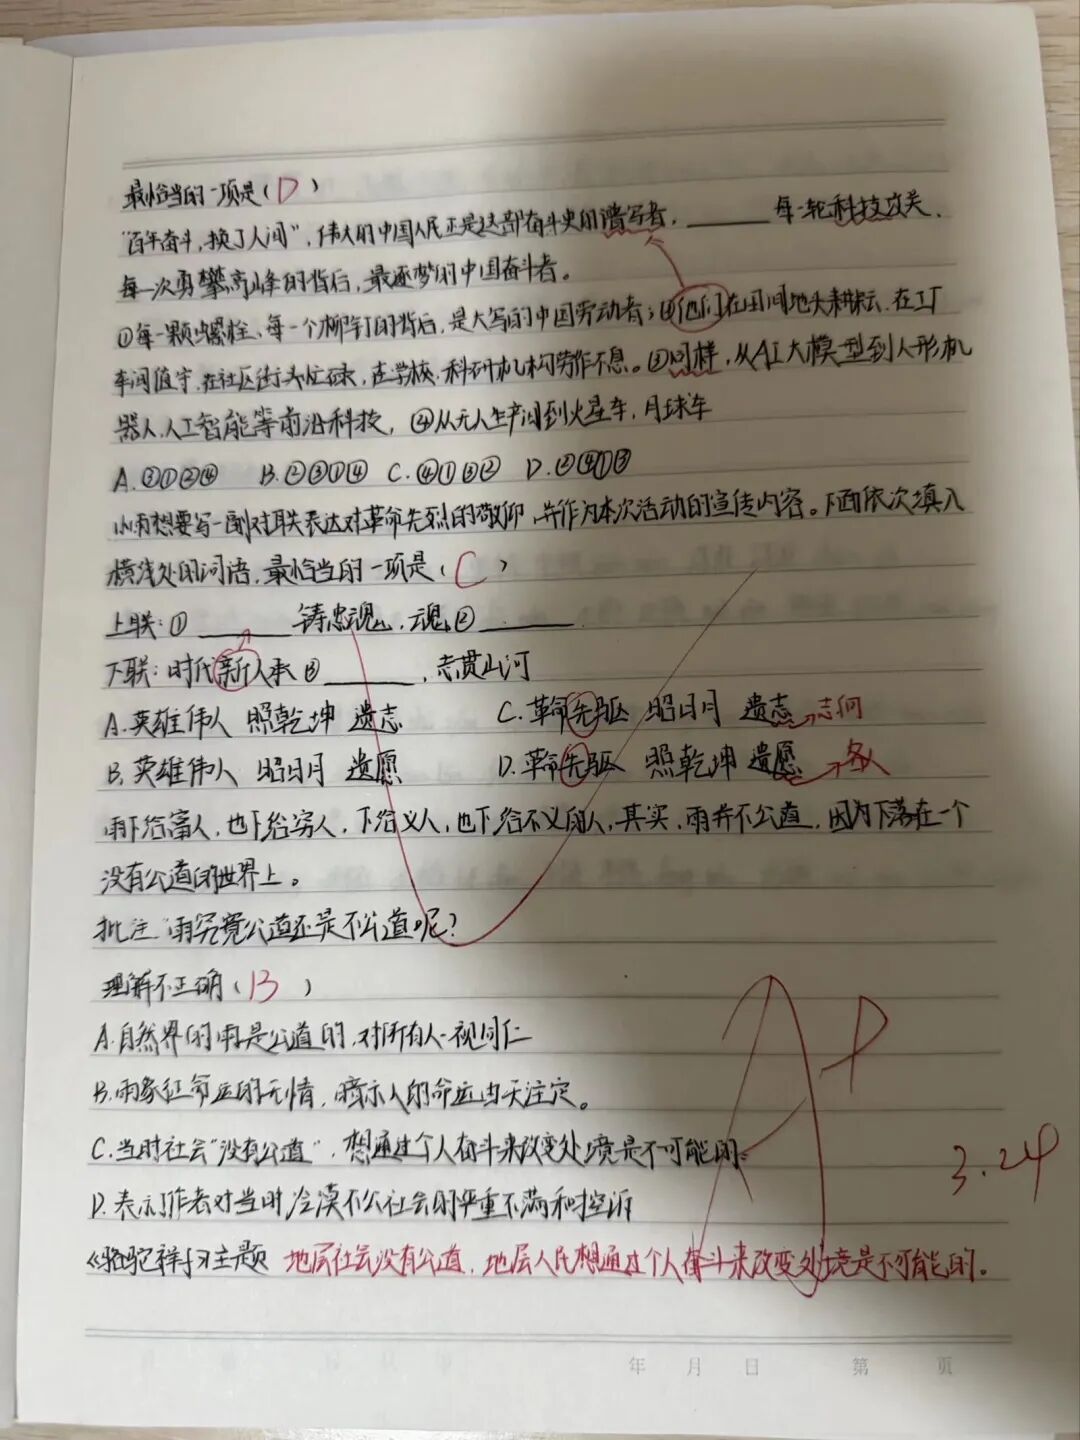 最恰当的一项是（D）
“百年奋斗，换了人间”，伟大的中国人民正是这部奋斗史的谱写者，______每一轮科技攻关、
每一次勇攀高峰的背后，最逐梦的中国奋斗者。
①每一颗螺栓、每一个柳钉的背后，是大写的中国劳动者；②他们在田间地头耕耘、在工
车间值守、在社区街头忙碌，在学校、科研机构劳作不息。③同样，从AI大模型到人形机
器人，人工智能等前沿科技，④从无人车间到火星车，月球车
A.③①②④ B.②③①④ C.④①③② D.②④①③
小雨想要写一副对联表达对革命先烈的敬仰，并作为本次活动的宣传内容。下面依次填入
横线处的词语，最恰当的一项是（C）
上联：①______铸忠魂，魂②______
下联：时代新人承③______，志贯山河
A.英雄伟人 照乾坤 遗志 C.革命先驱 昭日月 遗志 志向
B.英雄伟人 昭日月 遗愿 D.革命先驱 照乾坤 遗愿
雨下给富人，也下给穷人，下给义人，也下给不义的人，其实，雨并不公道，因为下落在一个
没有公道的世界上。
批注 雨究竟公道还是不公道呢？
理解不正确（B）
A.自然界的雨是公道的，对所有人一视同仁
B.雨象征命运的无情，暗示人的命运由天注定。
C.当时社会“没有公道”，想通过个人奋斗来改变处境是不可能的
D.表示作者对当时冷漠不公社会的严重不满和控诉
《骆驼祥子》主题 地层社会没有公道，地层人民想通过个人奋斗来改变处境是不可能的。
3.24
年 月 日 第 页